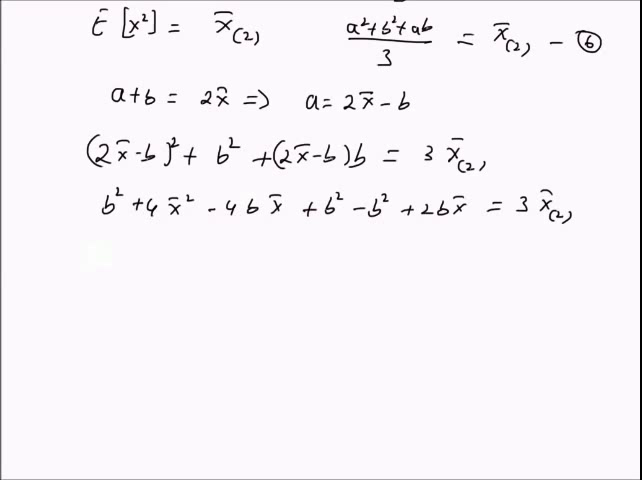 E[x²] = x̄₍₂₎   (a²+b²+ab)/3 = x̄₍₂₎ - ⑥
a+b = 2x̄ => a = 2x̄ - b
(2x̄-b)² + b² + (2x̄-b)b = 3 x̄₍₂₎
b² + 4x̄² - 4bx̄ + b² - b² + 2bx̄ = 3 x̄₍₂₎